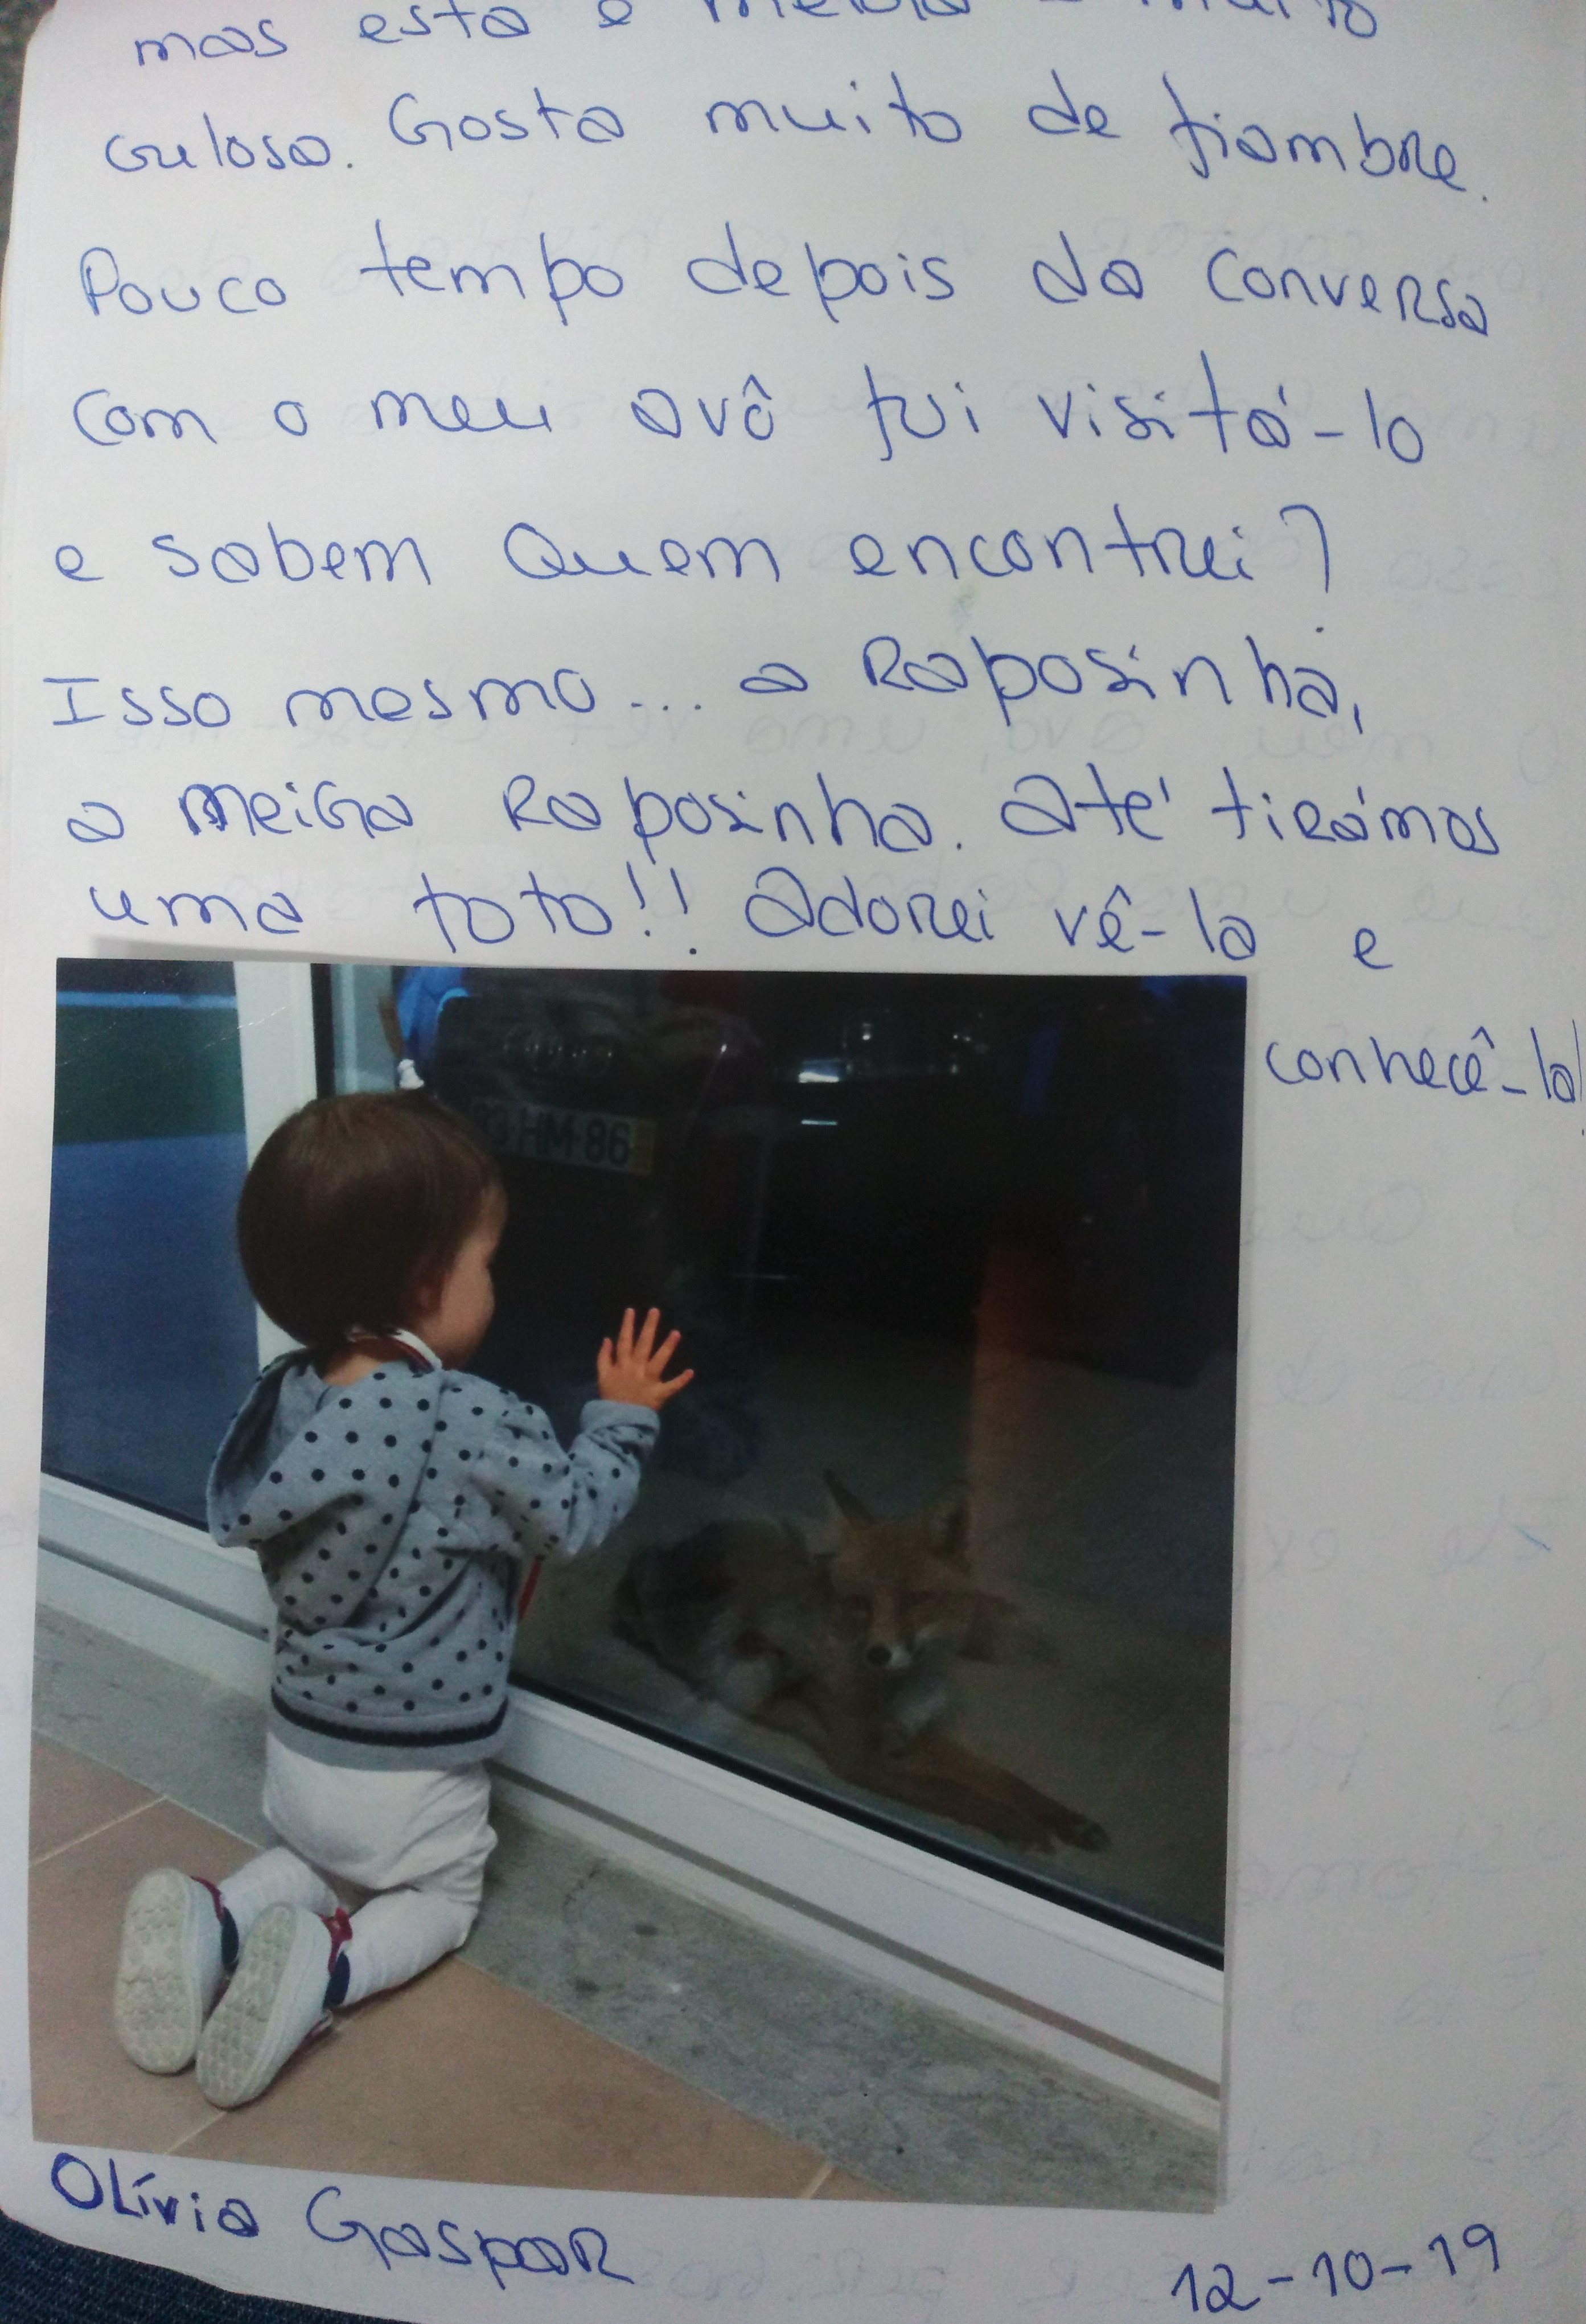 mas esta é meiga e muito
gulosa. Gosta muito de fiambre.
Pouco tempo depois da conversa
com o meu avô fui visitá-lo
e sabem quem encontrei?
Isso mesmo... a Raposinha,
a meiga Raposinha. Até tirámos
uma foto!! Adorei vê-la e
conhecê-la!
HM-86
Olívia Gaspar
12-10-19